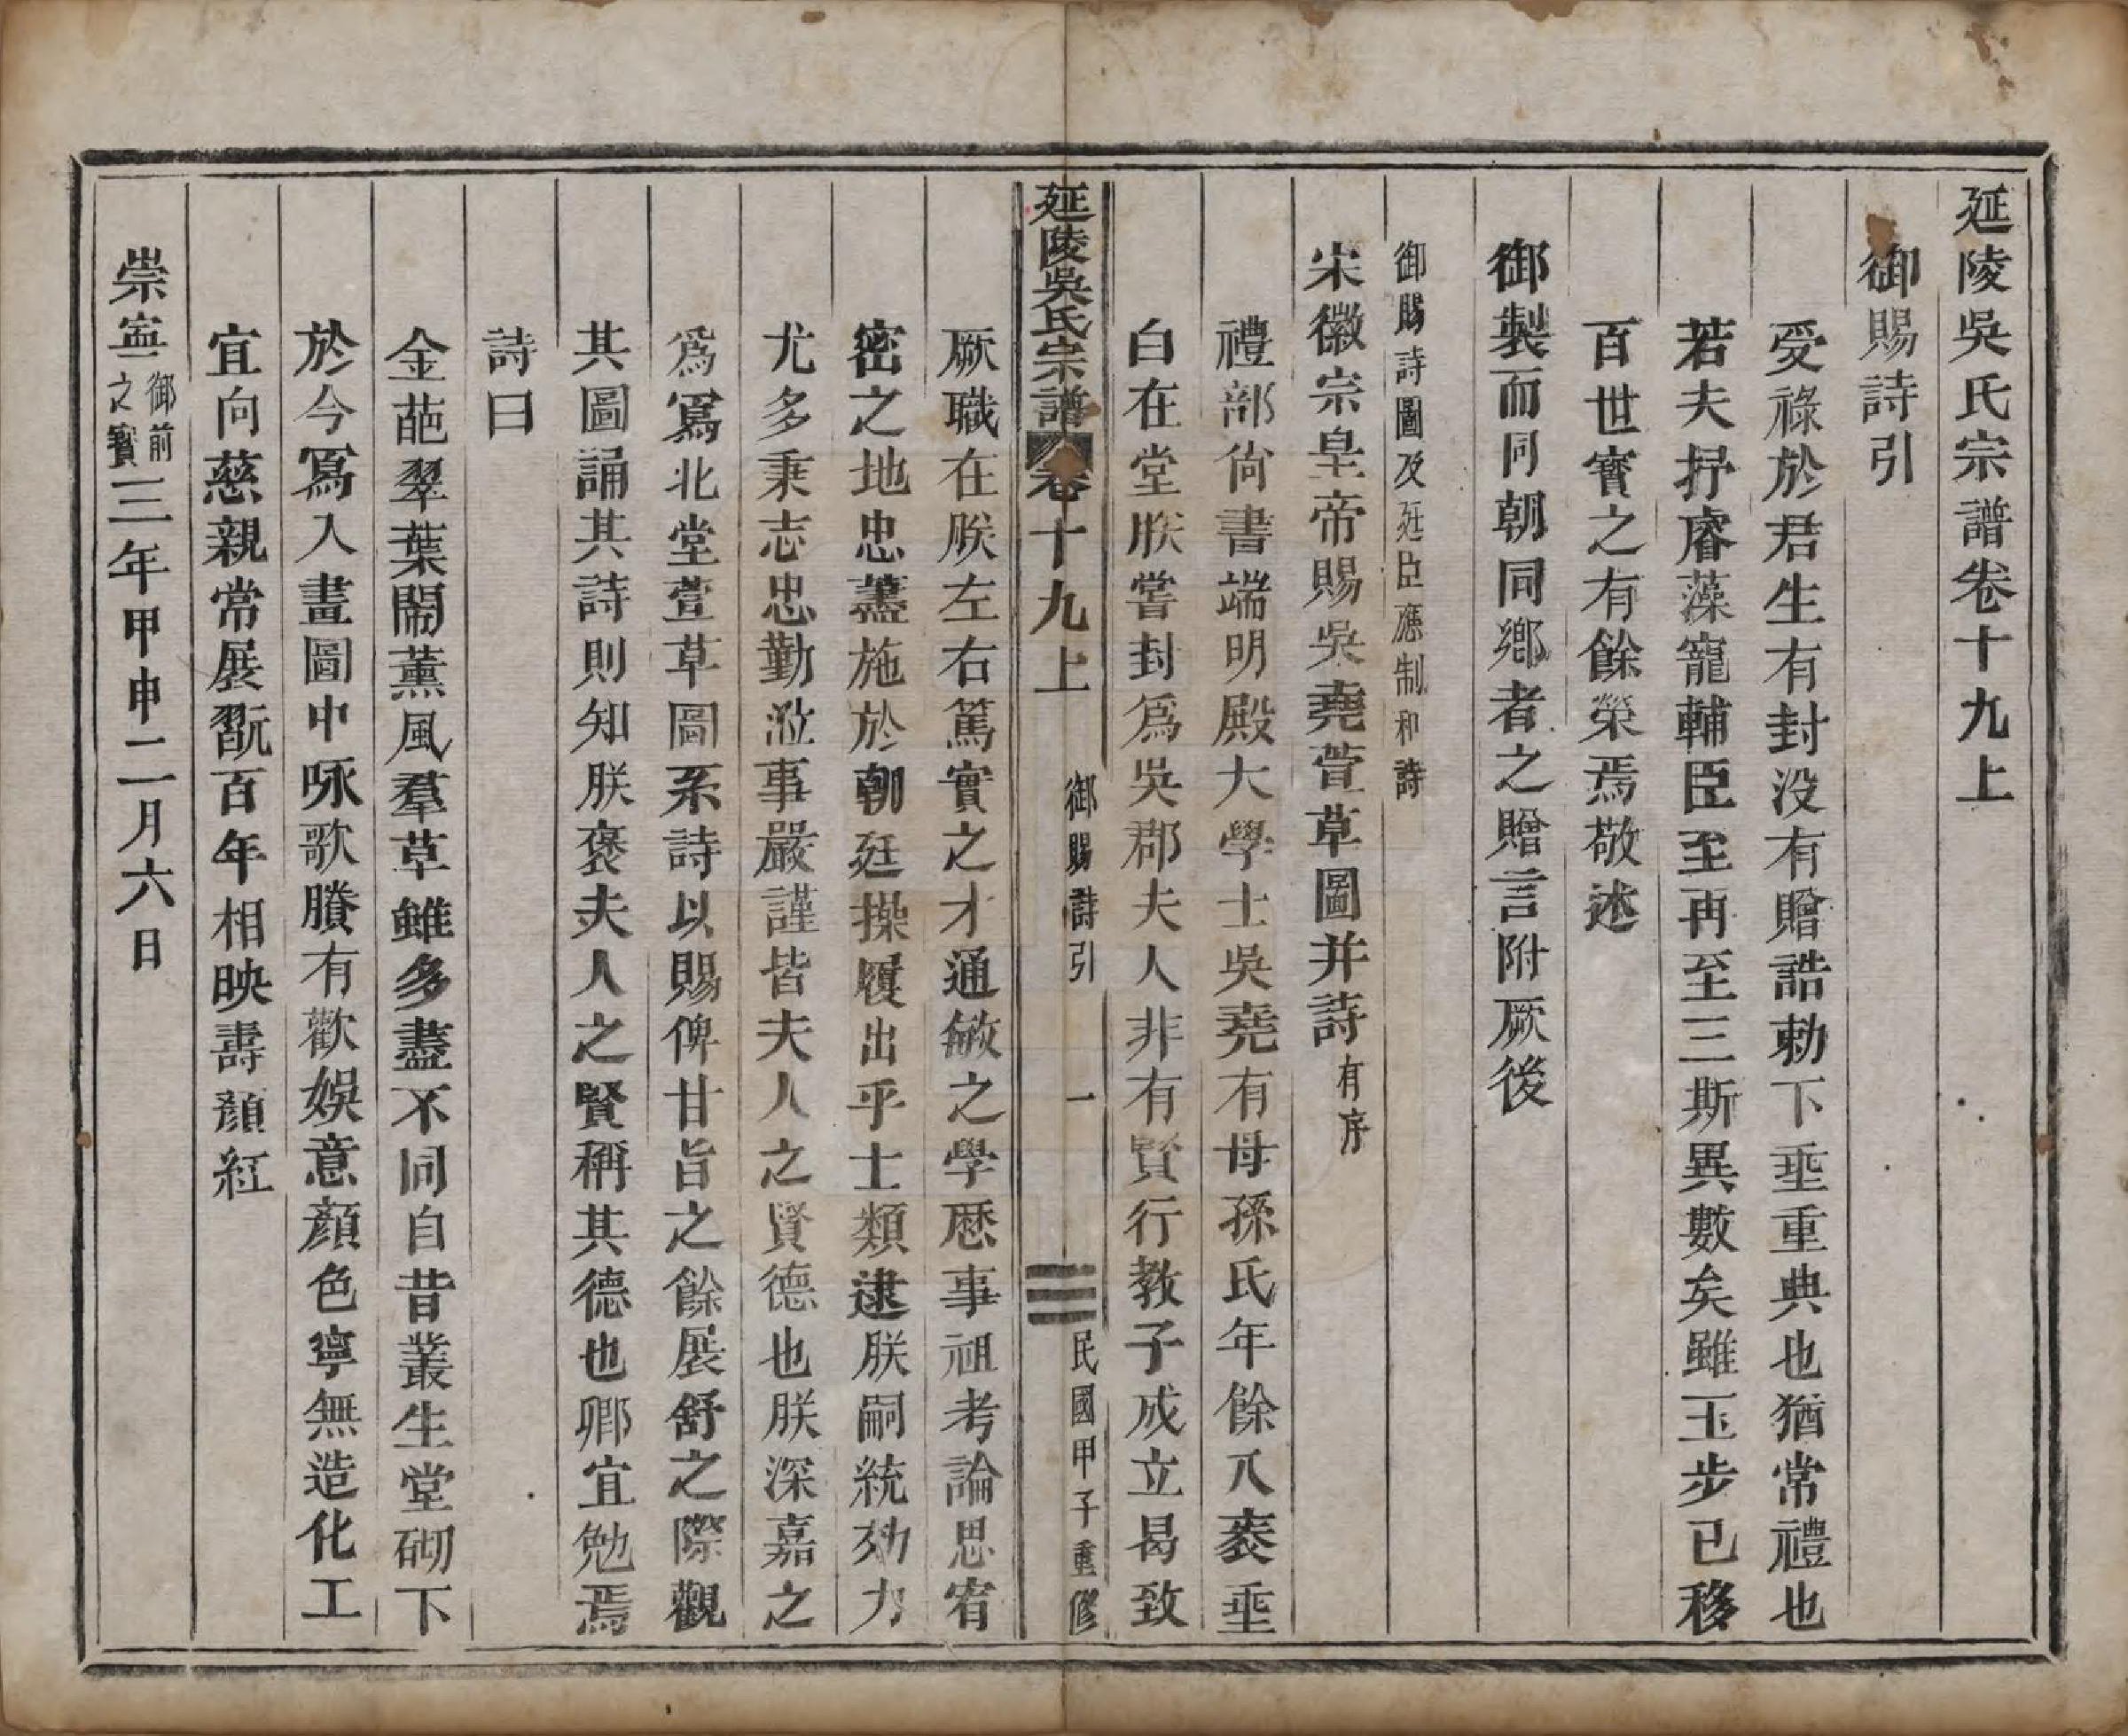 延陵吳氏宗譜卷十九上
御賜詩引
受祿於君生有封没有贈誥勅下埀重典也猶常禮也
若夫抒睿藻寵輔臣至再至三斯異數矣雖玉步已移
百世寳之有餘榮焉敬述
御製而同朝同鄉者之贈言附厥後
御賜詩圖及廷臣應制和詩
宋徽宗皇帝賜吳堯萱草圖并詩有序
禮部尙書端明殿大學士吳堯有母孫氏年餘八袠埀
白在堂朕嘗封爲吳郡夫人非有賢行教子成立曷致
延陵吳氏宗譜 卷十九上 御賜詩引 一 民國甲子重修
厥職在朕左右篤實之才通敏之學歷事祖考論思宥
密之地忠藎施於朝廷操履出乎士類逮朕嗣統効力
尤多秉志忠勤涖事嚴謹皆夫人之賢德也朕深嘉之
爲寫北堂萱草圖系詩以賜俾甘旨之餘展舒之際觀
其圖誦其詩則知朕褒夫人之賢稱其德也卿宜勉焉
詩曰
金葩翠葉閙薰風羣草雖多盡不同自昔叢生堂砌下
於今寫入畫圖中咏歌賸有歡娛意顏色寧無造化工
宜向慈親常展翫百年相映壽顏紅
崇寍御前之寳三年甲申二月六日